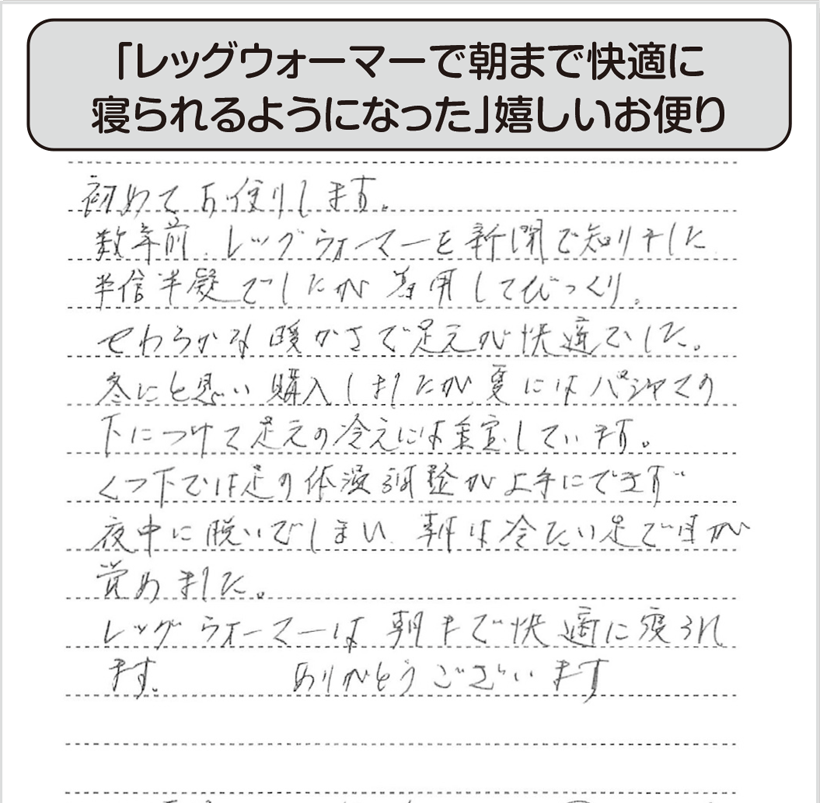 「レッグウォーマーで朝まで快適に
寝られるようになった」嬉しいお便り
初めてお便りします。
数年前、レッグウォーマーを新聞で知りました
半信半疑でしたが着用してびっくり。
やわらかな暖かさで足元が快適でした。
冬にと思い購入しましたが夏にはパジャマの
下につけて足元の冷えには重宝しています。
くつ下では足の体温調整が上手にできず
夜中に脱いでしまい、朝は冷たい足で目が
覚めました。
レッグウォーマーは朝まで快適に寝られ
ます。 ありがとうございます